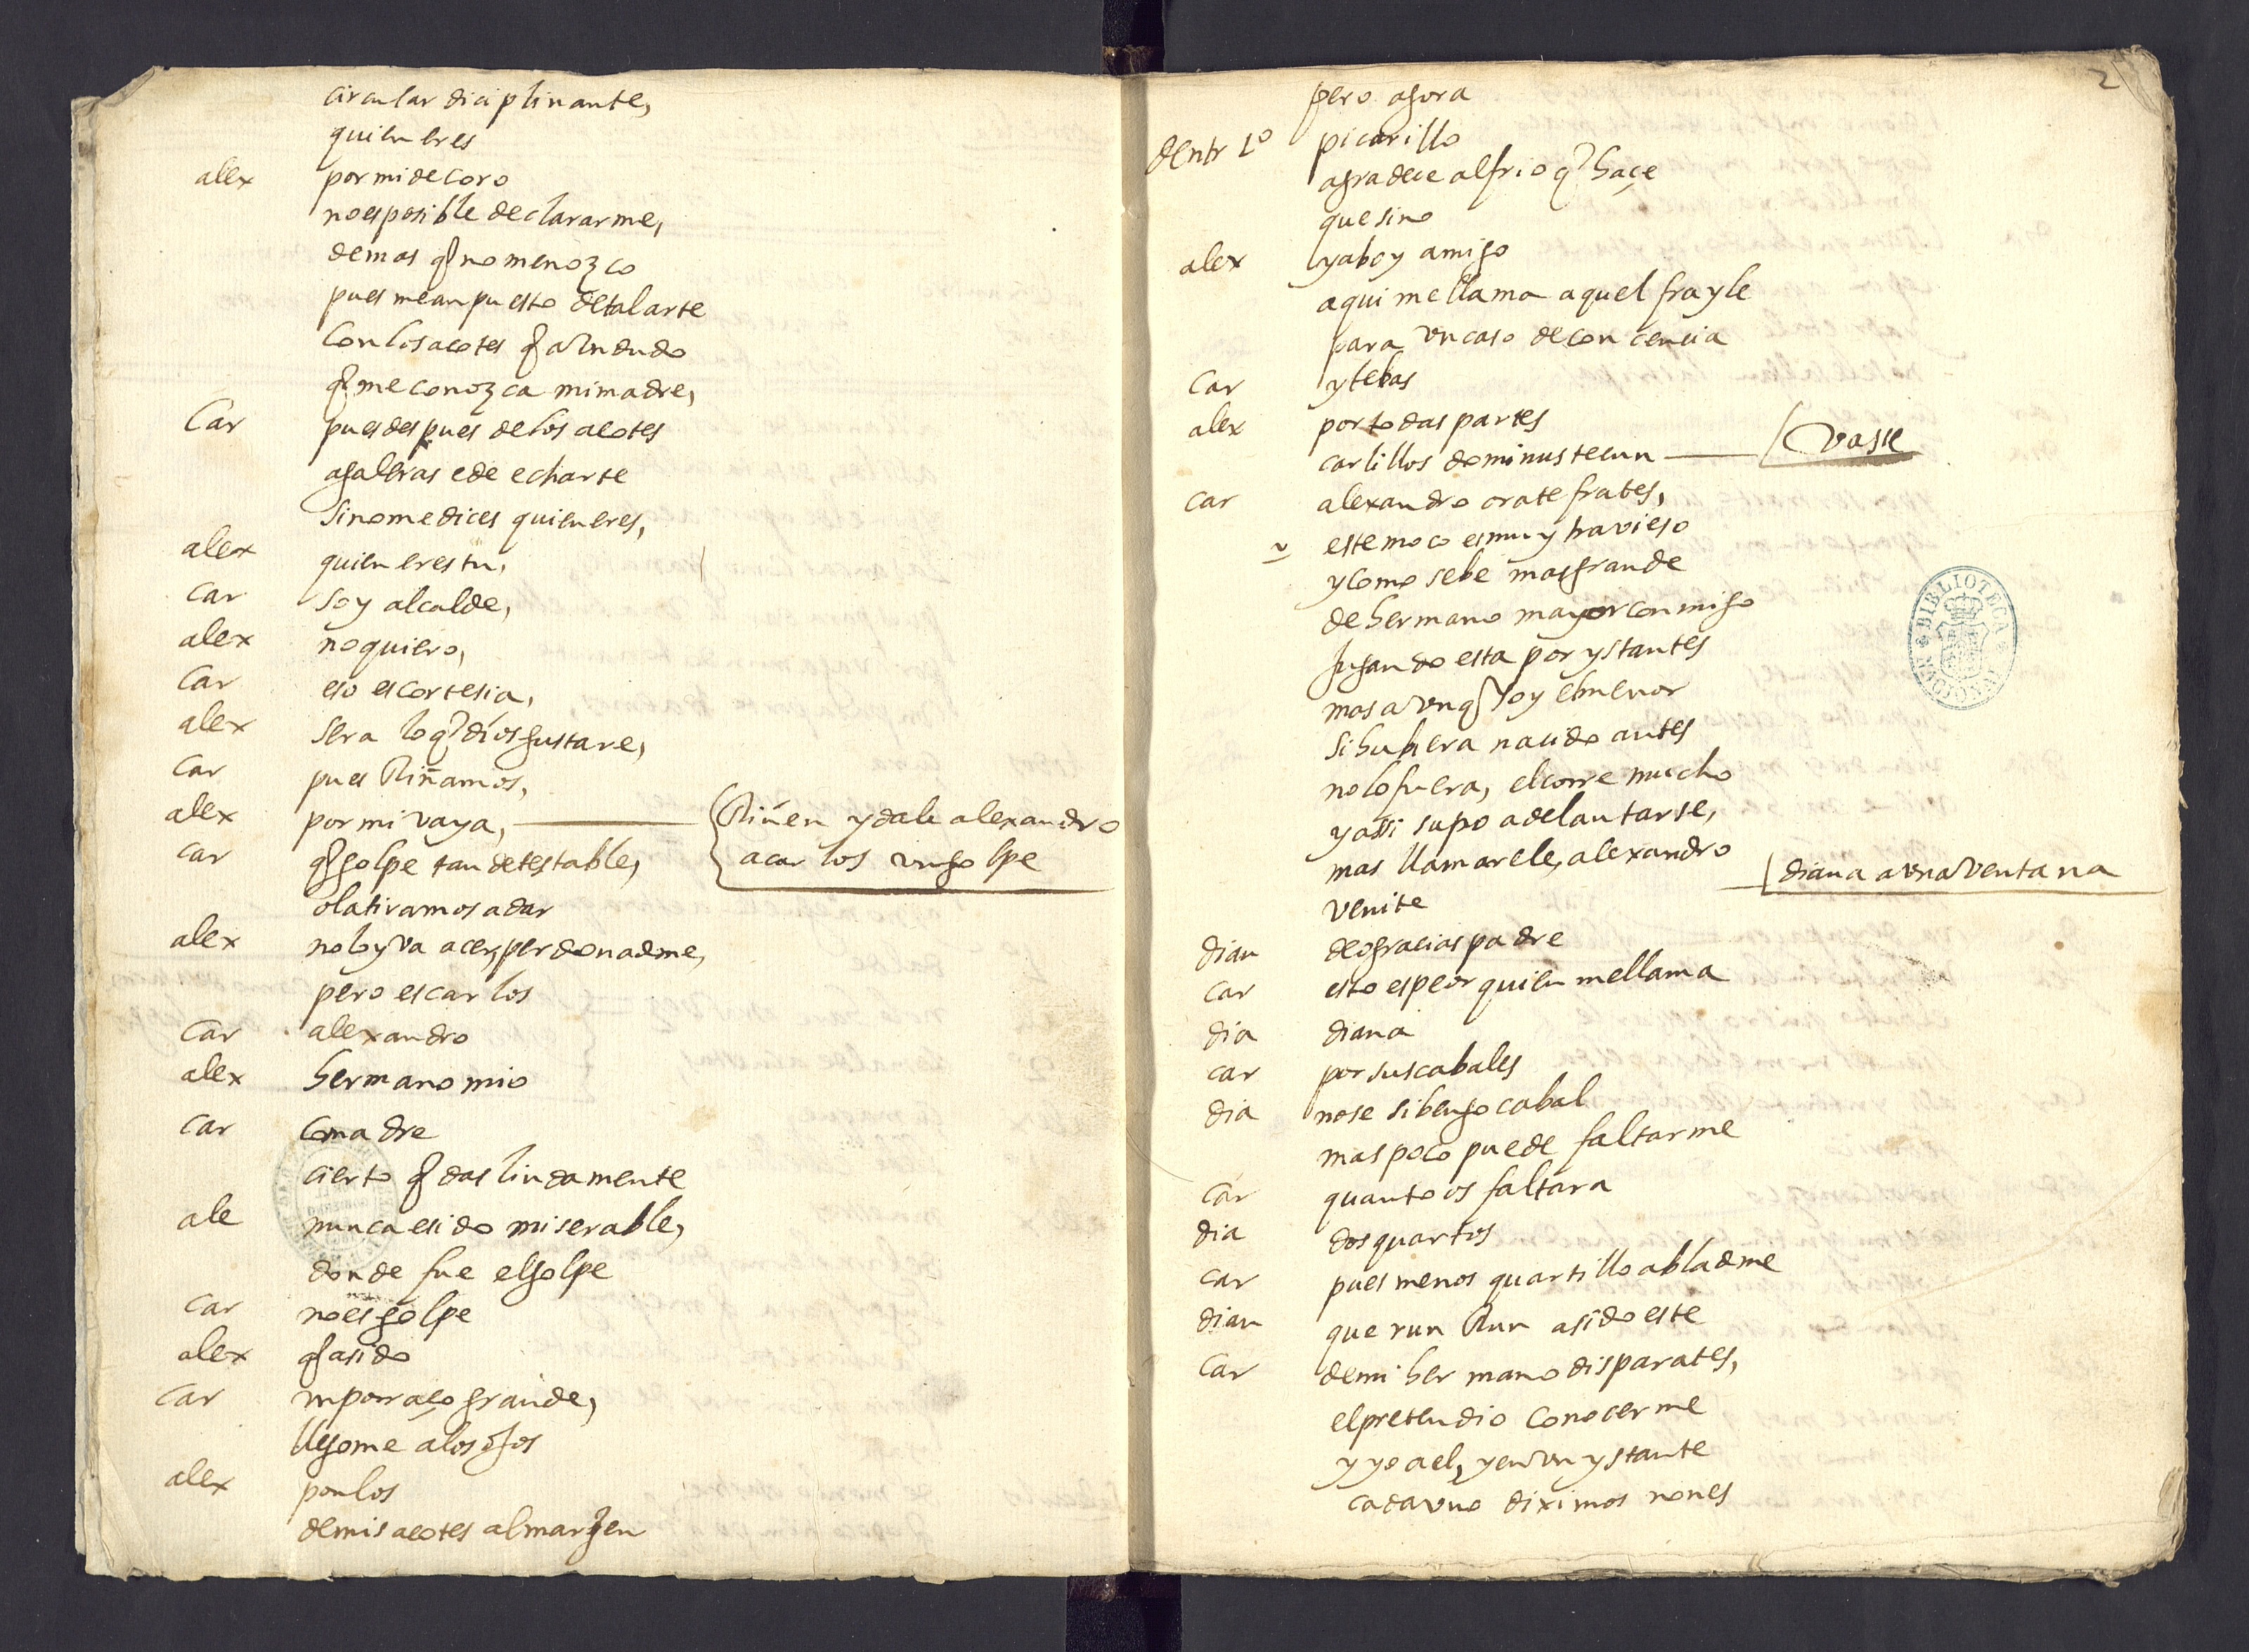 circular diciplinante,
quien eres
alex por mi decoro
no es posible declararme,
demas q no me nozco
pues me an puesto de tal arte
con los acotes q aun dudo
q me conozca mi madre,
Car pues despues de los acotes
a galeras e de echarte
si no me dices quien eres,
alex quien eres tu,
Car soy alcalde,
alex no quiero,
Car eso es cortesia,
alex sera lo q dios gustare,
Car pues Riñamos,
alex por mi vaya, Riñen y dale alexandro
a carlos un golpe
car q golpe tan detestable,
ola tiramos a dar
alex no lo yva acer, perdonadme,
pero es carlos
Car alexandro
alex hermano mio
Car comadre
cierto q das lindamente
ale nunca e sido miserable,
donde fue el golpe
Car no es golpe
alex q a sido
Car un porraço grande,
llegome a los ojos
alex ponlos
de mis acotes al margen
2
pero agora
dentr 1º picarillo
agradece al frio q haçe
que sino
alex ya boy amigo
aqui me llama aquel frayle
para un caso de concencia
Car y te bas
alex por todas partes
carlillos dominus tecun vasse
car alexandro orate frates,
este moco es muy travieso
y como se be mas grande
de hermano mayor conmigo
jugando esta por ystantes
mas aunq soy el menor
si hubiera nacido antes
no lo fuera, el corre mucho
y assi supo adelantarse,
mas llamarele, alexandro
diana a una ventana
venite
dian deo gracias padre
car esto es peor quien me llama
dia diana
car por sus cabales
dia no se si bengo cabal
mas poco puede faltarme
car quanto os faltara
dia dos quartos
car pues menos quartillo abladme
dian que run Run a sido este
Car de mi hermano disparates,
el pretendio conocerme
y yo a el, y en un ystante
cada uno diximos nones
BIBLIOTECA